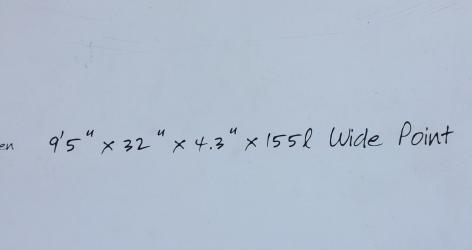 en 9'5" x 32" x 4.3" x 155l Wide Point